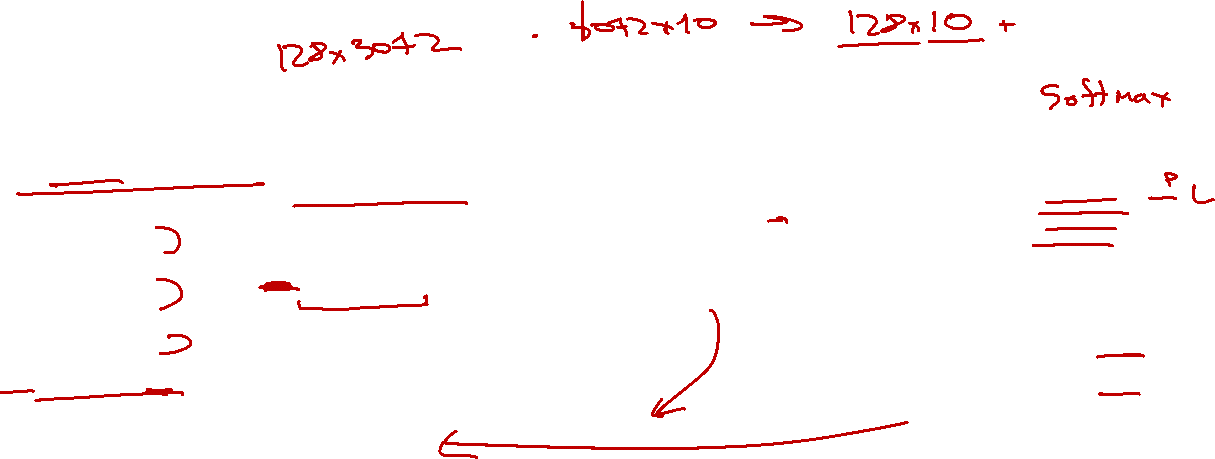 128x3072 . 3072x10 → 128x10 +
Softmax
P L